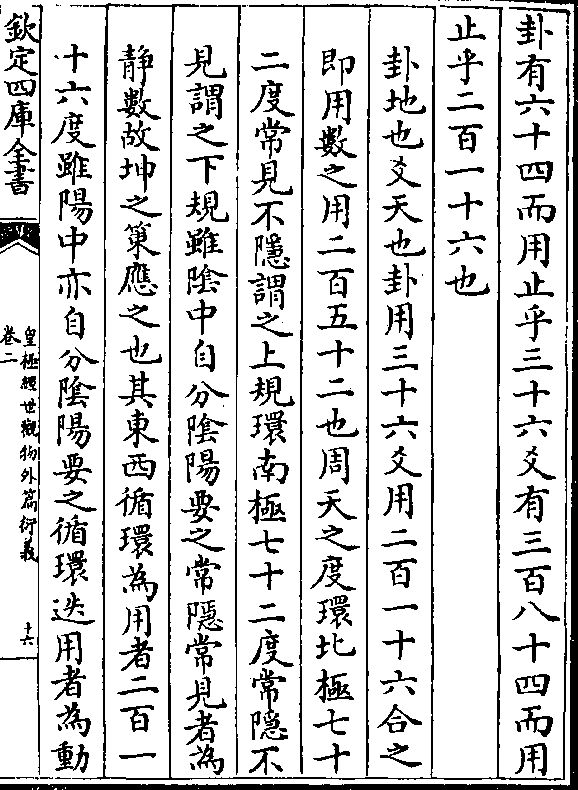 卦有六十四而用止乎三十六爻有三百八十四而用
止乎二百一十六也
卦地也爻天也卦用三十六爻用二百一十六合之
即用數之用二百五十二也周天之度環北極七十
二度常見不隱謂之上規環南極七十二度常隱不
見謂之下規雖陰中自分陰陽要之常隱常見者為
靜數故坤之策應之也其東西循環為用者二百一
十六度雖陽中亦自分陰陽要之循環迭用者為動
欽定四庫全書
皇極經世觀物外篇衍義
卷二
十六